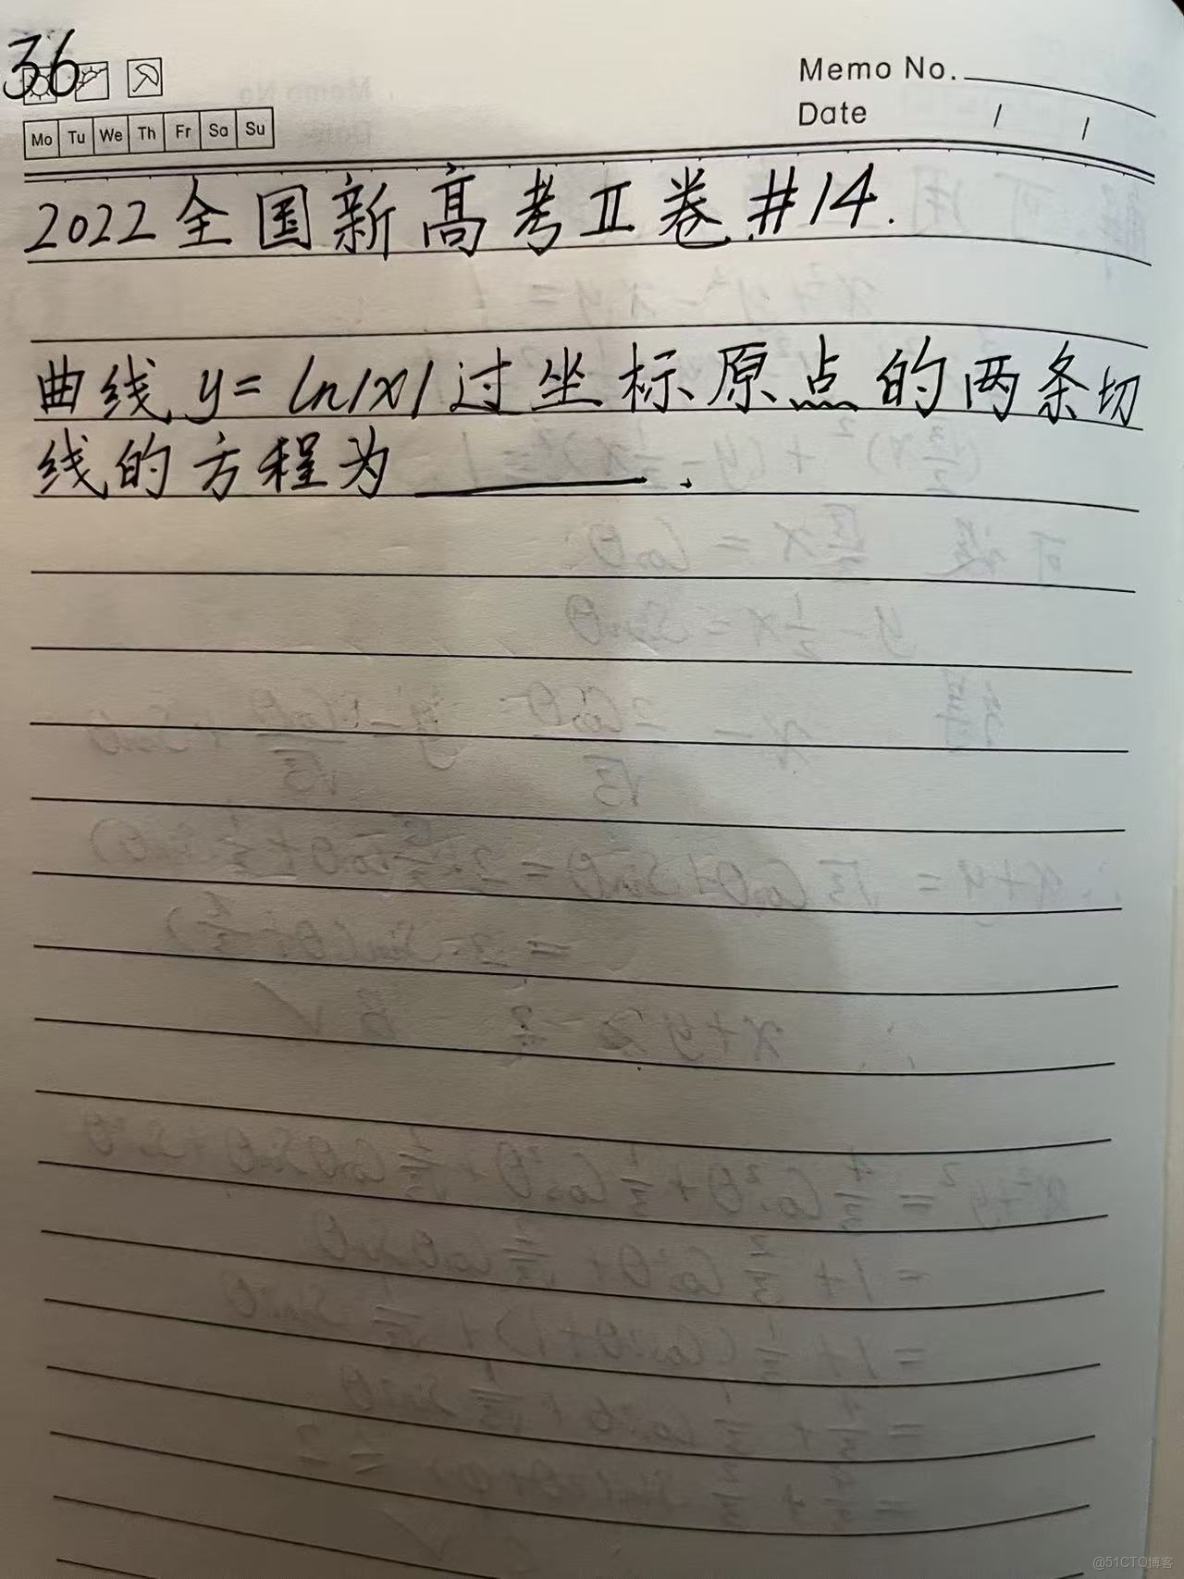 36
Memo No.
Date / /
Mo Tu We Th Fr Sa Su
2022全国新高考II卷#14.
曲线y=ln|x|过坐标原点的两条切
线的方程为______.
@51CTO博客